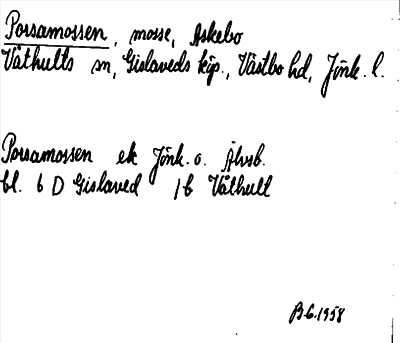 Porsamossen, mosse, Askebo
Våthults sn, Gislaveds köp., Västbo hd, Jönk. l.
Porsamossen ek Jönk. o. Älvsb.
bl. 6 D Gislaved 1b Våthult
B G. 1958